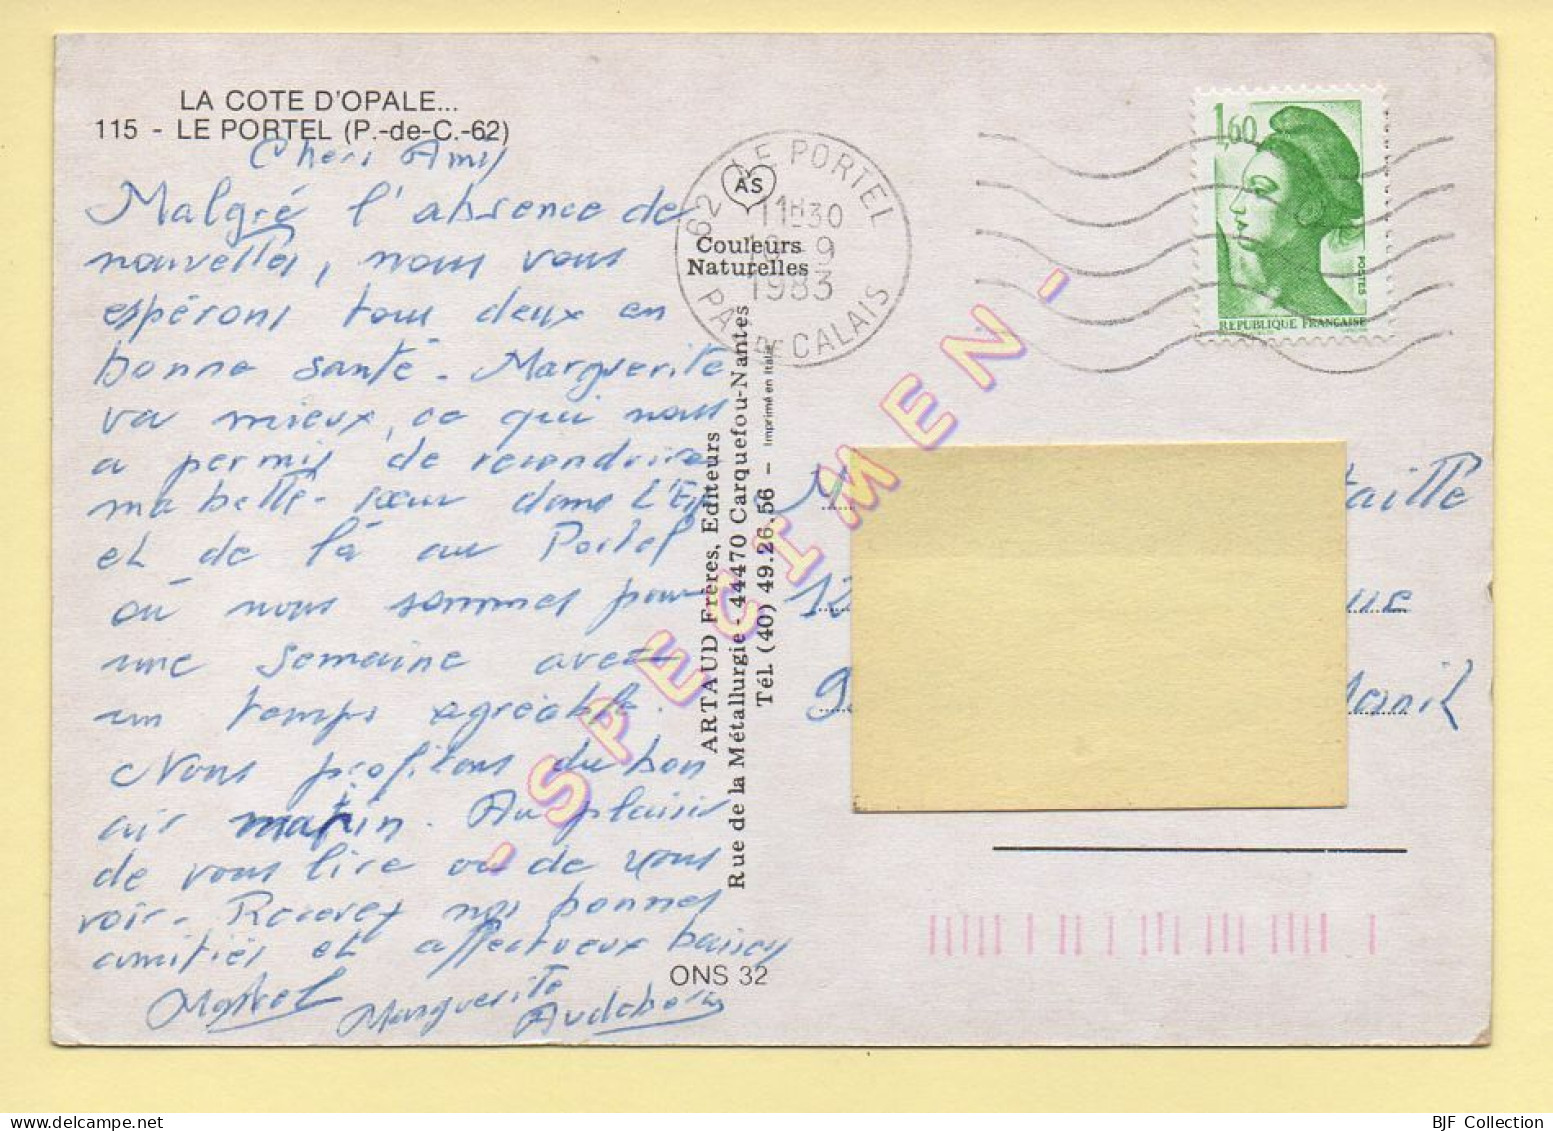 LA COTE D'OPALE...
115 - LE PORTEL (P.-de-C.-62)
Cheri Amis
Malgré l'absence de
nouvelles, nous vous
espérons tous deux en
bonne santé. Marguerite
va mieux, ce qui nous
a permis de
ma belle-sœur dans L'
et de là au Portel
où nous sommes pour
une semaine avec
un temps agréable.
Nous profitons du bon
air marin. Au plaisir
de vous lire ou de vous
voir. Recevez nos bonnes
amitiés et affectueux baisers
Marcel
Marguerite
62 LE PORTEL
11H30
9
1983
PAS DE CALAIS
AS
Couleurs
Naturelles
ARTAUD Frères, Editeurs
Rue de la Métallurgie - 44470 Carquefou-Nantes
Tél. (40) 49.26.56 -
Imprimé en Italie
ONS 32
1,60
POSTES
REPUBLIQUE FRANÇAISE
M
taille
12
rue
9
Mesnil
- SPECIMEN -
BJF Collection